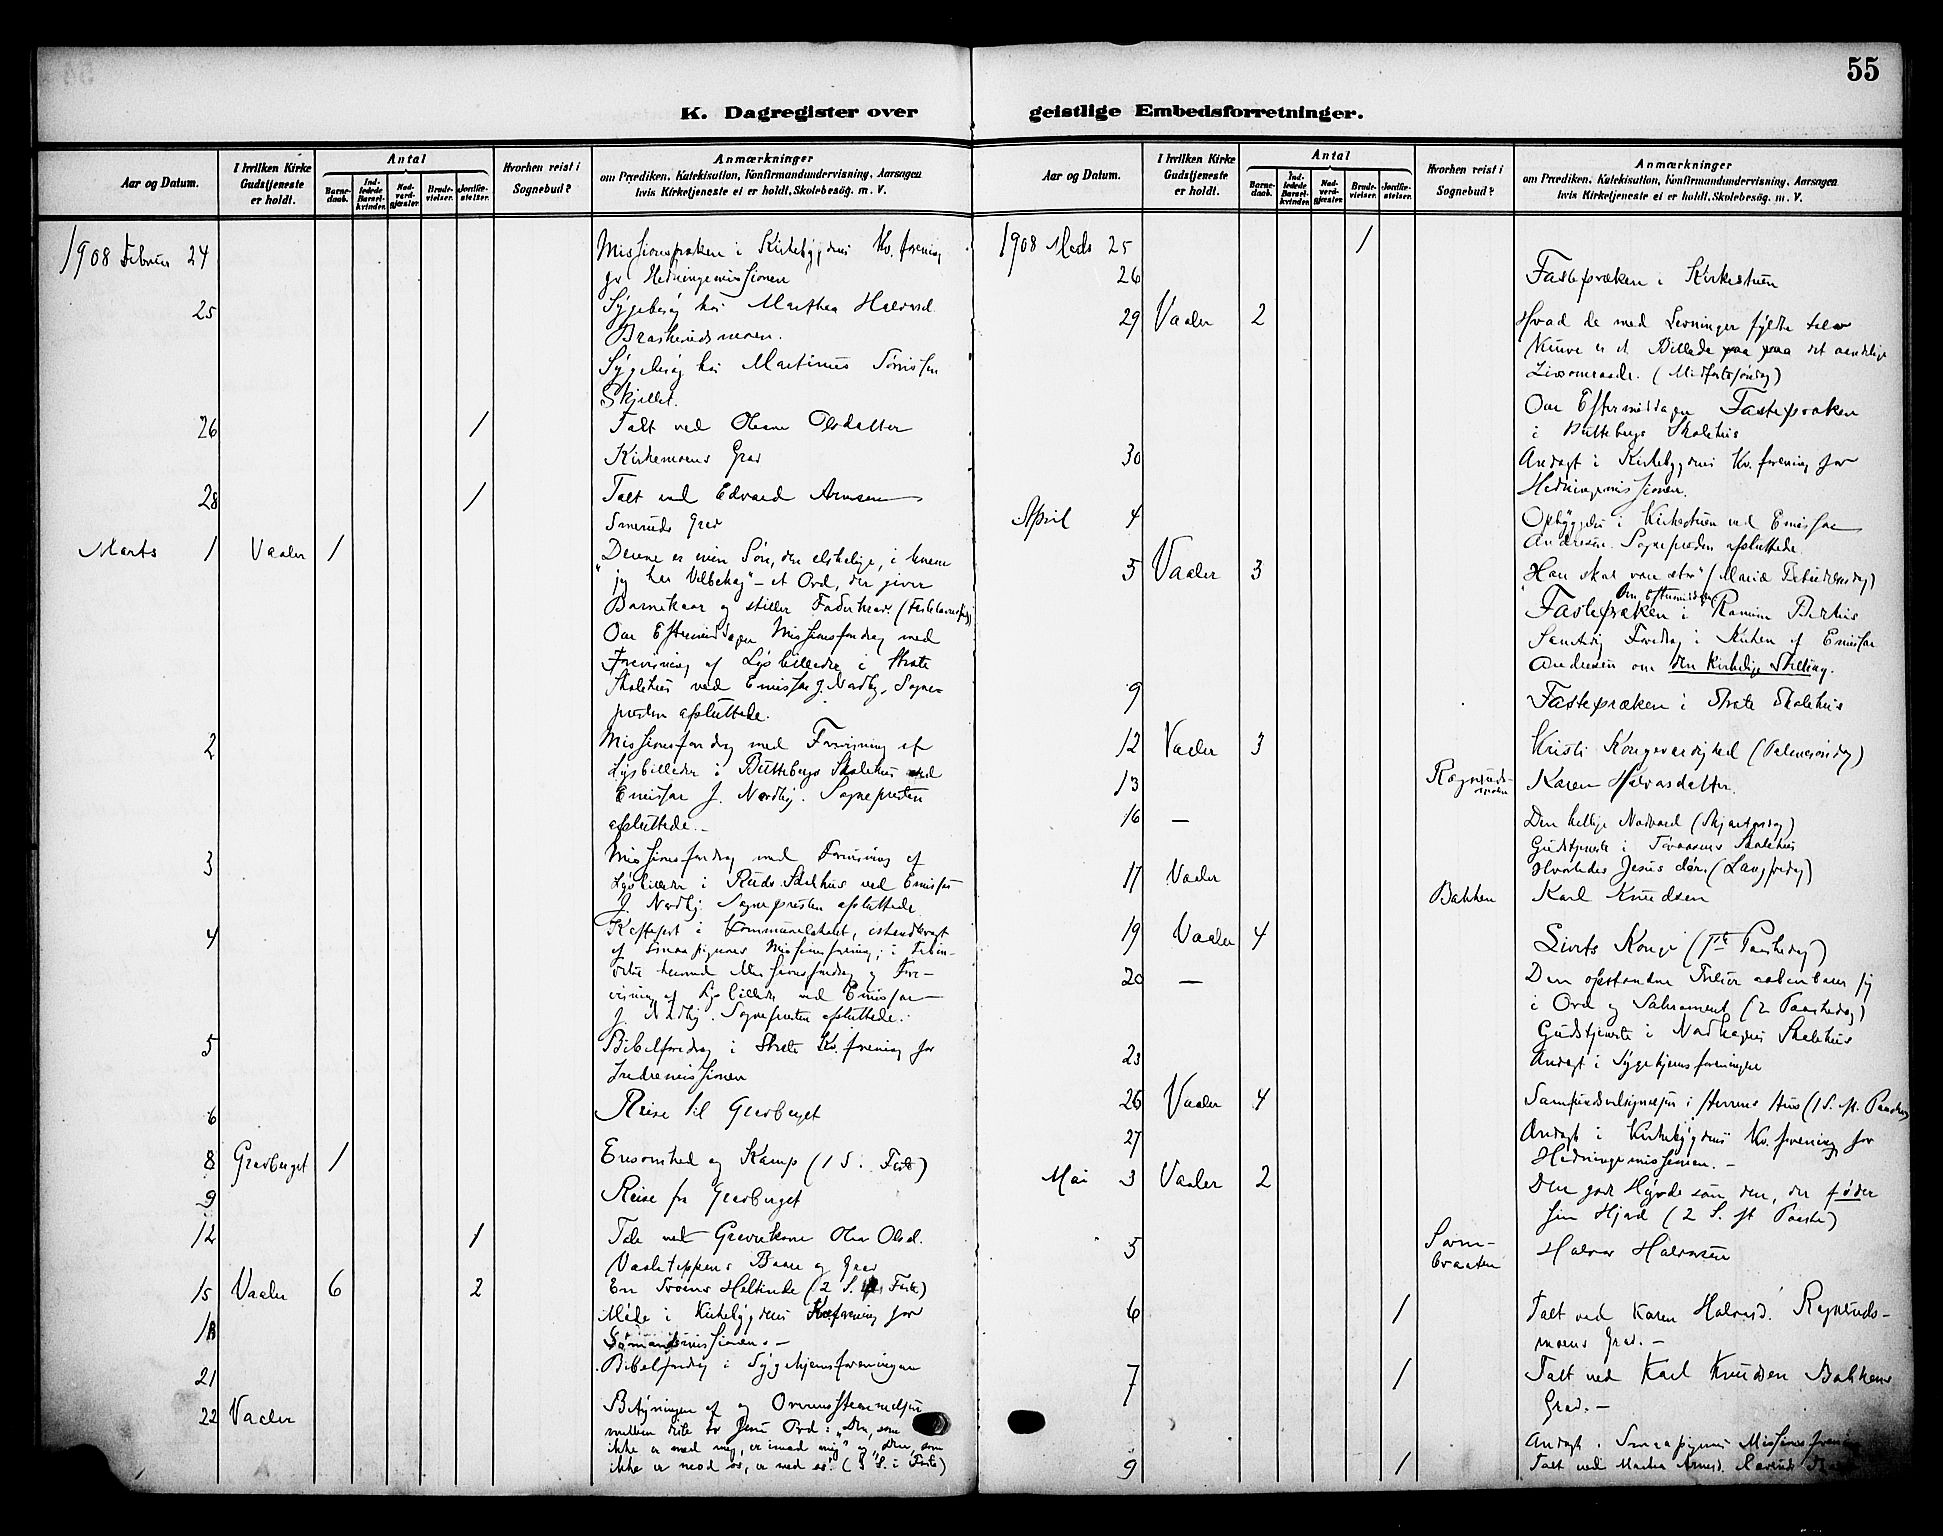 55
K. Dagregister over
Aar og Datum.
I hvilken Kirke Gudstjeneste er holdt.
Antal
Barnedaab.
Indledede Barselkvinder.
Nadverdgjæster.
Brudevielser.
Jordfæstelser.
Hvorhen reist i Sognebud?
Anmærkninger
om Prædiken, Katekisation, Konfirmandundervisning, Aarsagen
hvis Kirketjeneste ei er holdt, Skolebesøg. m. V.
1908 Februar 24 Missionspræken i Kirkebygdens Kv. forening
for Hedningemissionen
25 Sygebesøg hos Marthea Halvorsd.
Braskerudmoen.
Sygebesøg hos Martinus
26 1 Talt ved Olsdatter
Kirkemoens Grav
28 1 Talt ved Edvard Arnesen
Grav
Marts 1 Vaaler 1 "Denne er min Søn, den elskelige, i hvem
jeg har Velbehag" - et Ord, der giver
Barnekaar og stiller (Fastelavnssøndag)
Om Eftermiddagen Missionsforedrag med
Forevisning af Lysbilleder i
Skolehus ved Emissær J. Nordby. Sogne-
presten afsluttede.
2 Missionsforedrag med Forevisning af
Lysbilleder i Butteberg Skolehus ved
Emissær J. Nordby. Sognepresten
afsluttede.-
3 Missionsforedrag med Forevisning af
Lysbilleder i Ruds Skolehus ved Emissær
J. Nordby Sognepresten afsluttede
4 Kaffefest i Kommunelokalet, istandbragt
af Smaapigernes Missionsforening; i
Missionsforedrag og Fore-
visning af Lysbilleder ved Emissær
J. Nordby. Sognepresten afsluttede.
5 Bibelforedrag i Kv. forening for
Indremissionen
6 Reise til Gravberget
8 Gravberget 1 Ensomhed og Kamp (1 S. i Faste)
9 Reise fra Gravberget
12 1 Tale ved Olsd.
Baare og Grav
15 Vaaler 6 2 En Troens Heltinde (2 S. i Faste)
18 Møde i Kirkebygdens Kv. forening for
Sømandsmissionen.-
21 Bibelforedrag i Sygehjemsforeningen
22 Vaaler Betydningen af og Overensstemmelsen
mellem disse to Jesu Ord: "Den, som
ikke er med mig, er imod mig" og "Den, som
ikke er mod os, er med os". (3 S. i Faste)
geistlige Embedsforretninger.
Aar og Datum.
I hvilken Kirke Gudstjeneste er holdt.
Antal
Barnedaab.
Indledede Barselkvinder.
Nadverdgjæster.
Brudevielser.
Jordfæstelser.
Hvorhen reist i Sognebud?
Anmærkninger
om Prædiken, Katekisation, Konfirmandundervisning, Aarsagen
hvis Kirketjeneste ei er holdt, Skolebesøg. m. V.
1908 Marts 25 1
26 Fastepræken i Kirkestuen
29 Vaaler 2 Hvad de med Levninger fyldte tolv
Kurve er et Billede paa paa det aandelige
Livsomraade. (Midfastesøndag)
Om Eftermiddagen Fastepræken
i Butteberg Skolehus
30 Andagt i Kirkebygdens Kv. forening for
Hedningemissionen.
April 4 Opbyggelse i Kirkestuen ved Emissær
Andresen. Sognepresten afsluttede.
5 Vaaler 3 "Han skal være stor" (Mariæ Bebudelsesdag)
Om Eftermiddagen
Fastepræken i
Samtidig Foredrag i Kirken af Emissær
Andresen om den kirkelige Stilling.
9 Fastepræken i Skolehus
12 Vaaler 3 Kristi Kongeværdighed (Palmesøndag)
13 Karen Halvorsdatter.
16 — Den hellige Nadverd (Skjærtorsdag)
Gudstjeneste i Skolehus
17 Vaaler Hvorledes Jesus døde. (Langfredag)
Bakken Karl Knudsen
19 Vaaler 4 Livets Konge (1ste Paaskedag)
20 — Den opstandne Frelser aabenbarer sig
i Ord og Sakrament (2 Paaskedag)
Gudstjeneste i Nordhagens Skolehus
23 Andagt i Sygehjemsforeningen
26 Vaaler 4 Samfundsvelsignelsen i Herrens Hus (1 S. eft. Paaske)
27 Andagt i Kirkebygdens Kv. forening for
Hedningemissionen.-
Mai 3 Vaaler 2 Den gode Hyrde som den, der føder
sin Hjord (2 S. eft. Paaske)
5 braaten Halvor Halvorsen
6 1 Talt ved Karen Halvorsd.
moens Grav.-
7 1 Talt ved Karl Knudsen Bakkens
Grav.-
Andagt i Smaapigernes Missionsforening
9 1 Talt ved Arnesd.